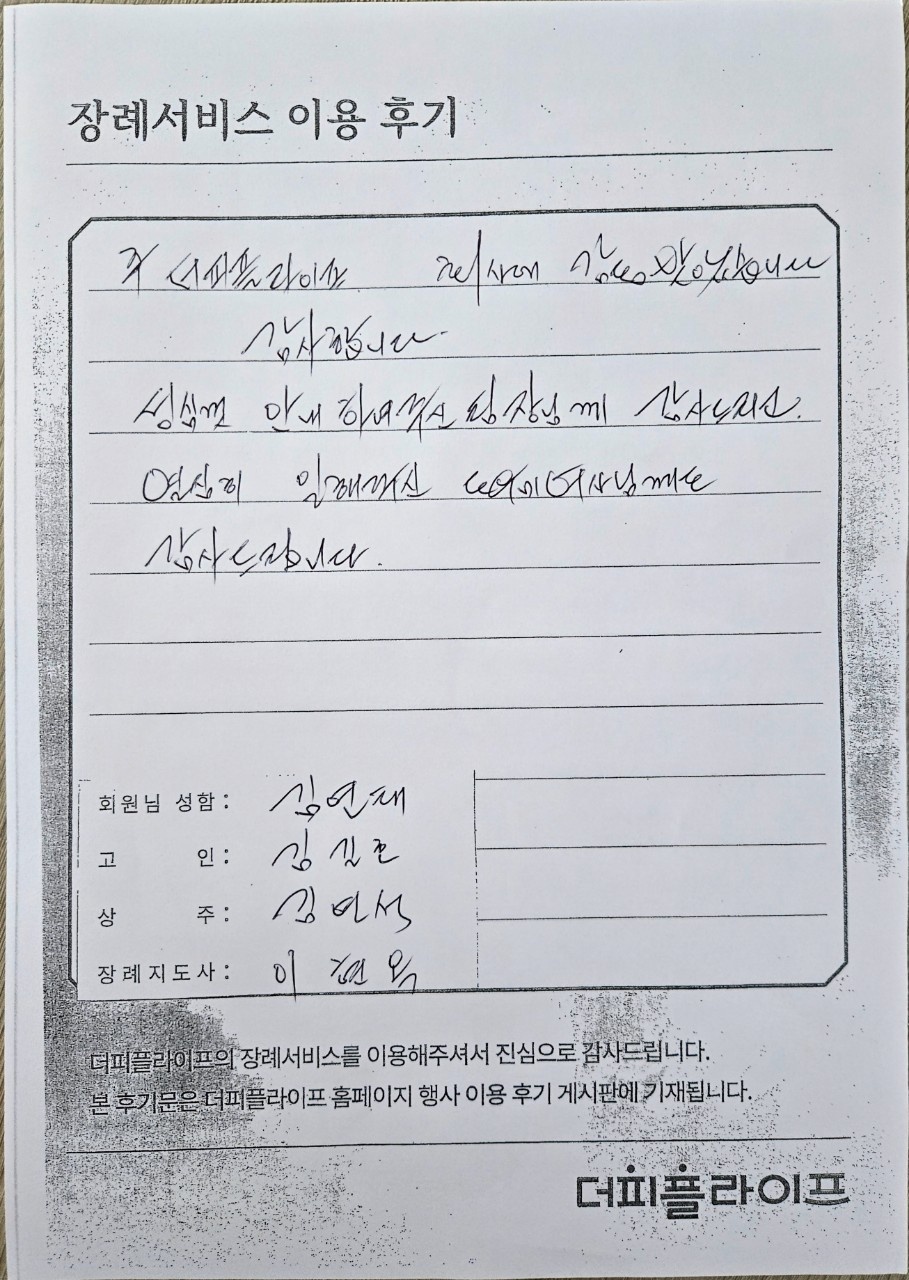 장례서비스 이용 후기
주 더피플라이프 행사에 감동 받았습니다
감사합니다
성심껏 안내 하여주신 팀장님께 감사드리고.
열심히 일해주신 도우미여사님께도
감사드립니다.
회원님 성함: 김연재
고 인: 김길호
상 주: 김민석
장례지도사: 이
더피플라이프의 장례서비스를 이용해주셔서 진심으로 감사드립니다.
본 후기문은 더피플라이프 홈페이지 행사 이용 후기 게시판에 기재됩니다.
더피플라이프